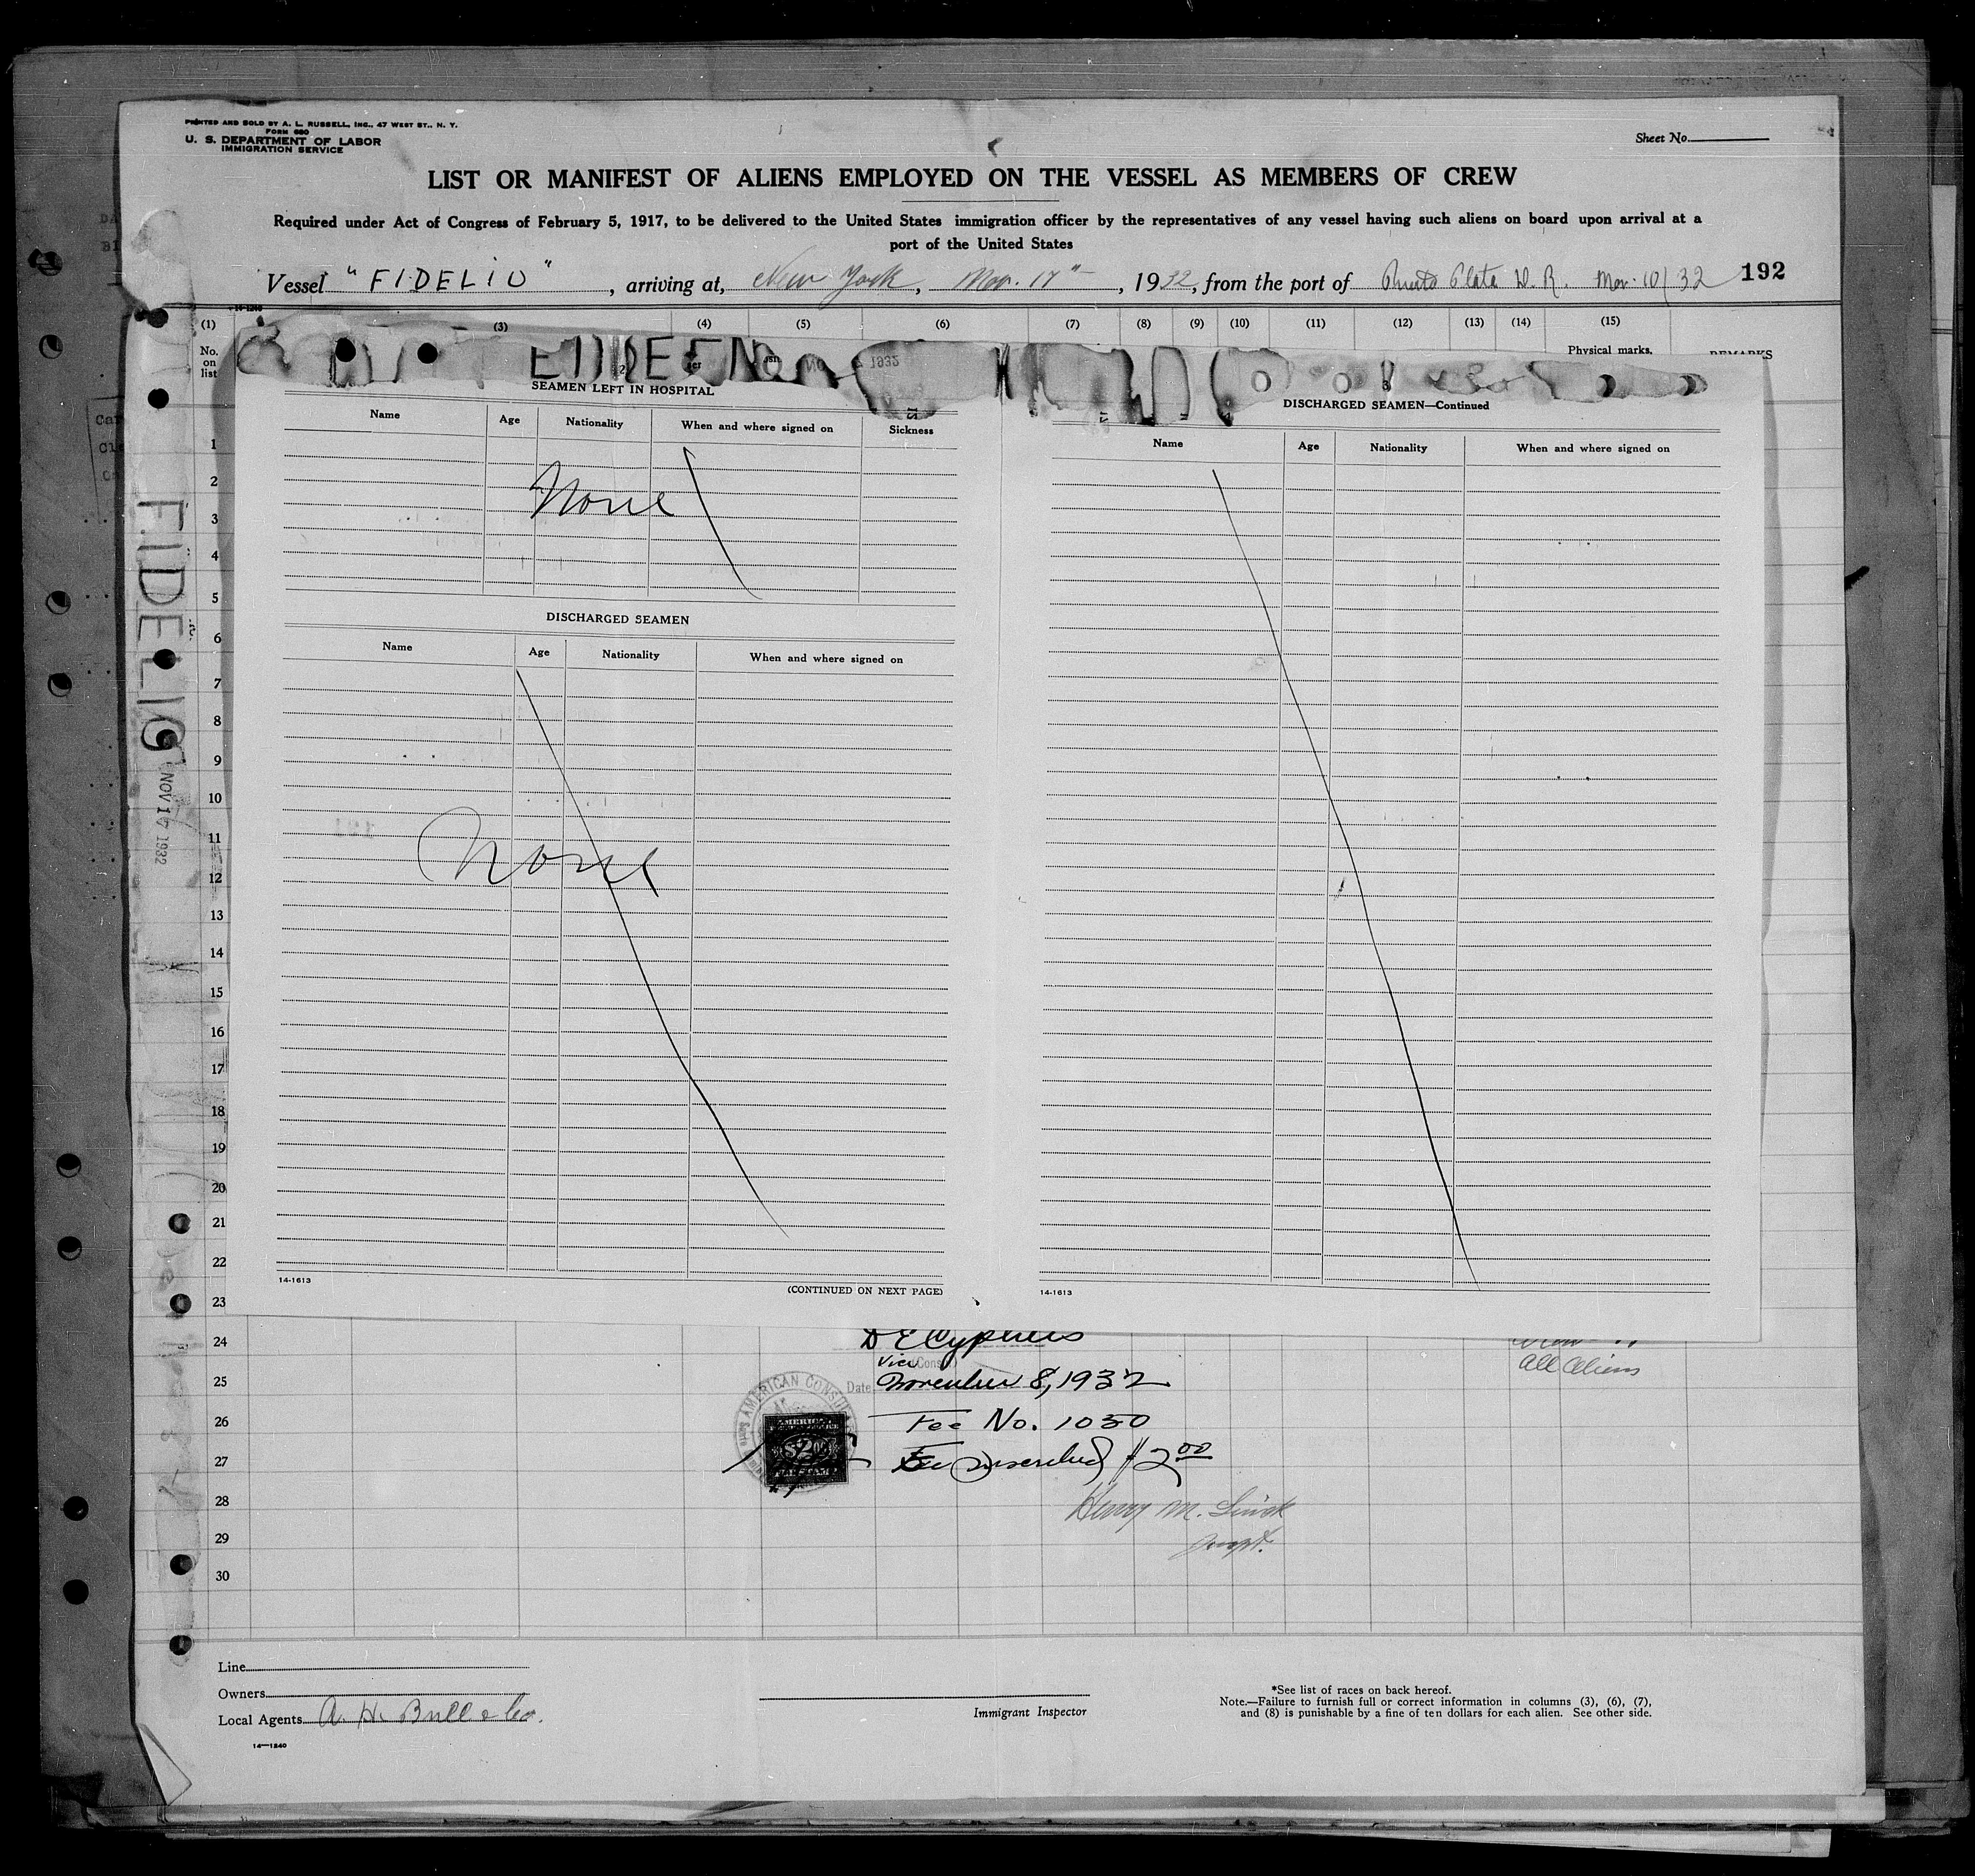 PRINTED AND SOLD BY A. L. RUSSELL, INC., 47 WEST ST., N. Y.
FORM 680
U. S. DEPARTMENT OF LABOR
IMMIGRATION SERVICE
Sheet No.
LIST OR MANIFEST OF ALIENS EMPLOYED ON THE VESSEL AS MEMBERS OF CREW
Required under Act of Congress of February 5, 1917, to be delivered to the United States immigration officer by the representatives of any vessel having such aliens on board upon arrival at a
port of the United States
Vessel "FIDELIO", arriving at, New York, Nov. 17", 1932, from the port of Puerto Plata D. R. Nov. 10/32 192
(1) (3) (4) (5) (6) (7) (8) (9) (10) (11) (12) (13) (14) (15)
No. on list
Physical marks,
REMARKS
SEAMEN LEFT IN HOSPITAL
Name Age Nationality When and where signed on Sickness
None
DISCHARGED SEAMEN
Name Age Nationality When and where signed on
None
14-1613
(CONTINUED ON NEXT PAGE)
3
DISCHARGED SEAMEN—Continued
Name Age Nationality When and where signed on
14-1613
FIDELIO
NOV 17 1932
1
2
3
4
5
6
7
8
9
10
11
12
13
14
15
16
17
18
19
20
21
22
23
24
25
26
27
28
29
30
Vice Consul
All Aliens
Date November 8, 1932
AMERICAN CONSUL
Fee No. 1050
Fee prescribed $2.00
Henry M.
Inspt.
Line
Owners
Local Agents A. H. Bull & Co.
14—1240
Immigrant Inspector
*See list of races on back hereof.
Note.—Failure to furnish full or correct information in columns (3), (6), (7),
and (8) is punishable by a fine of ten dollars for each alien. See other side.